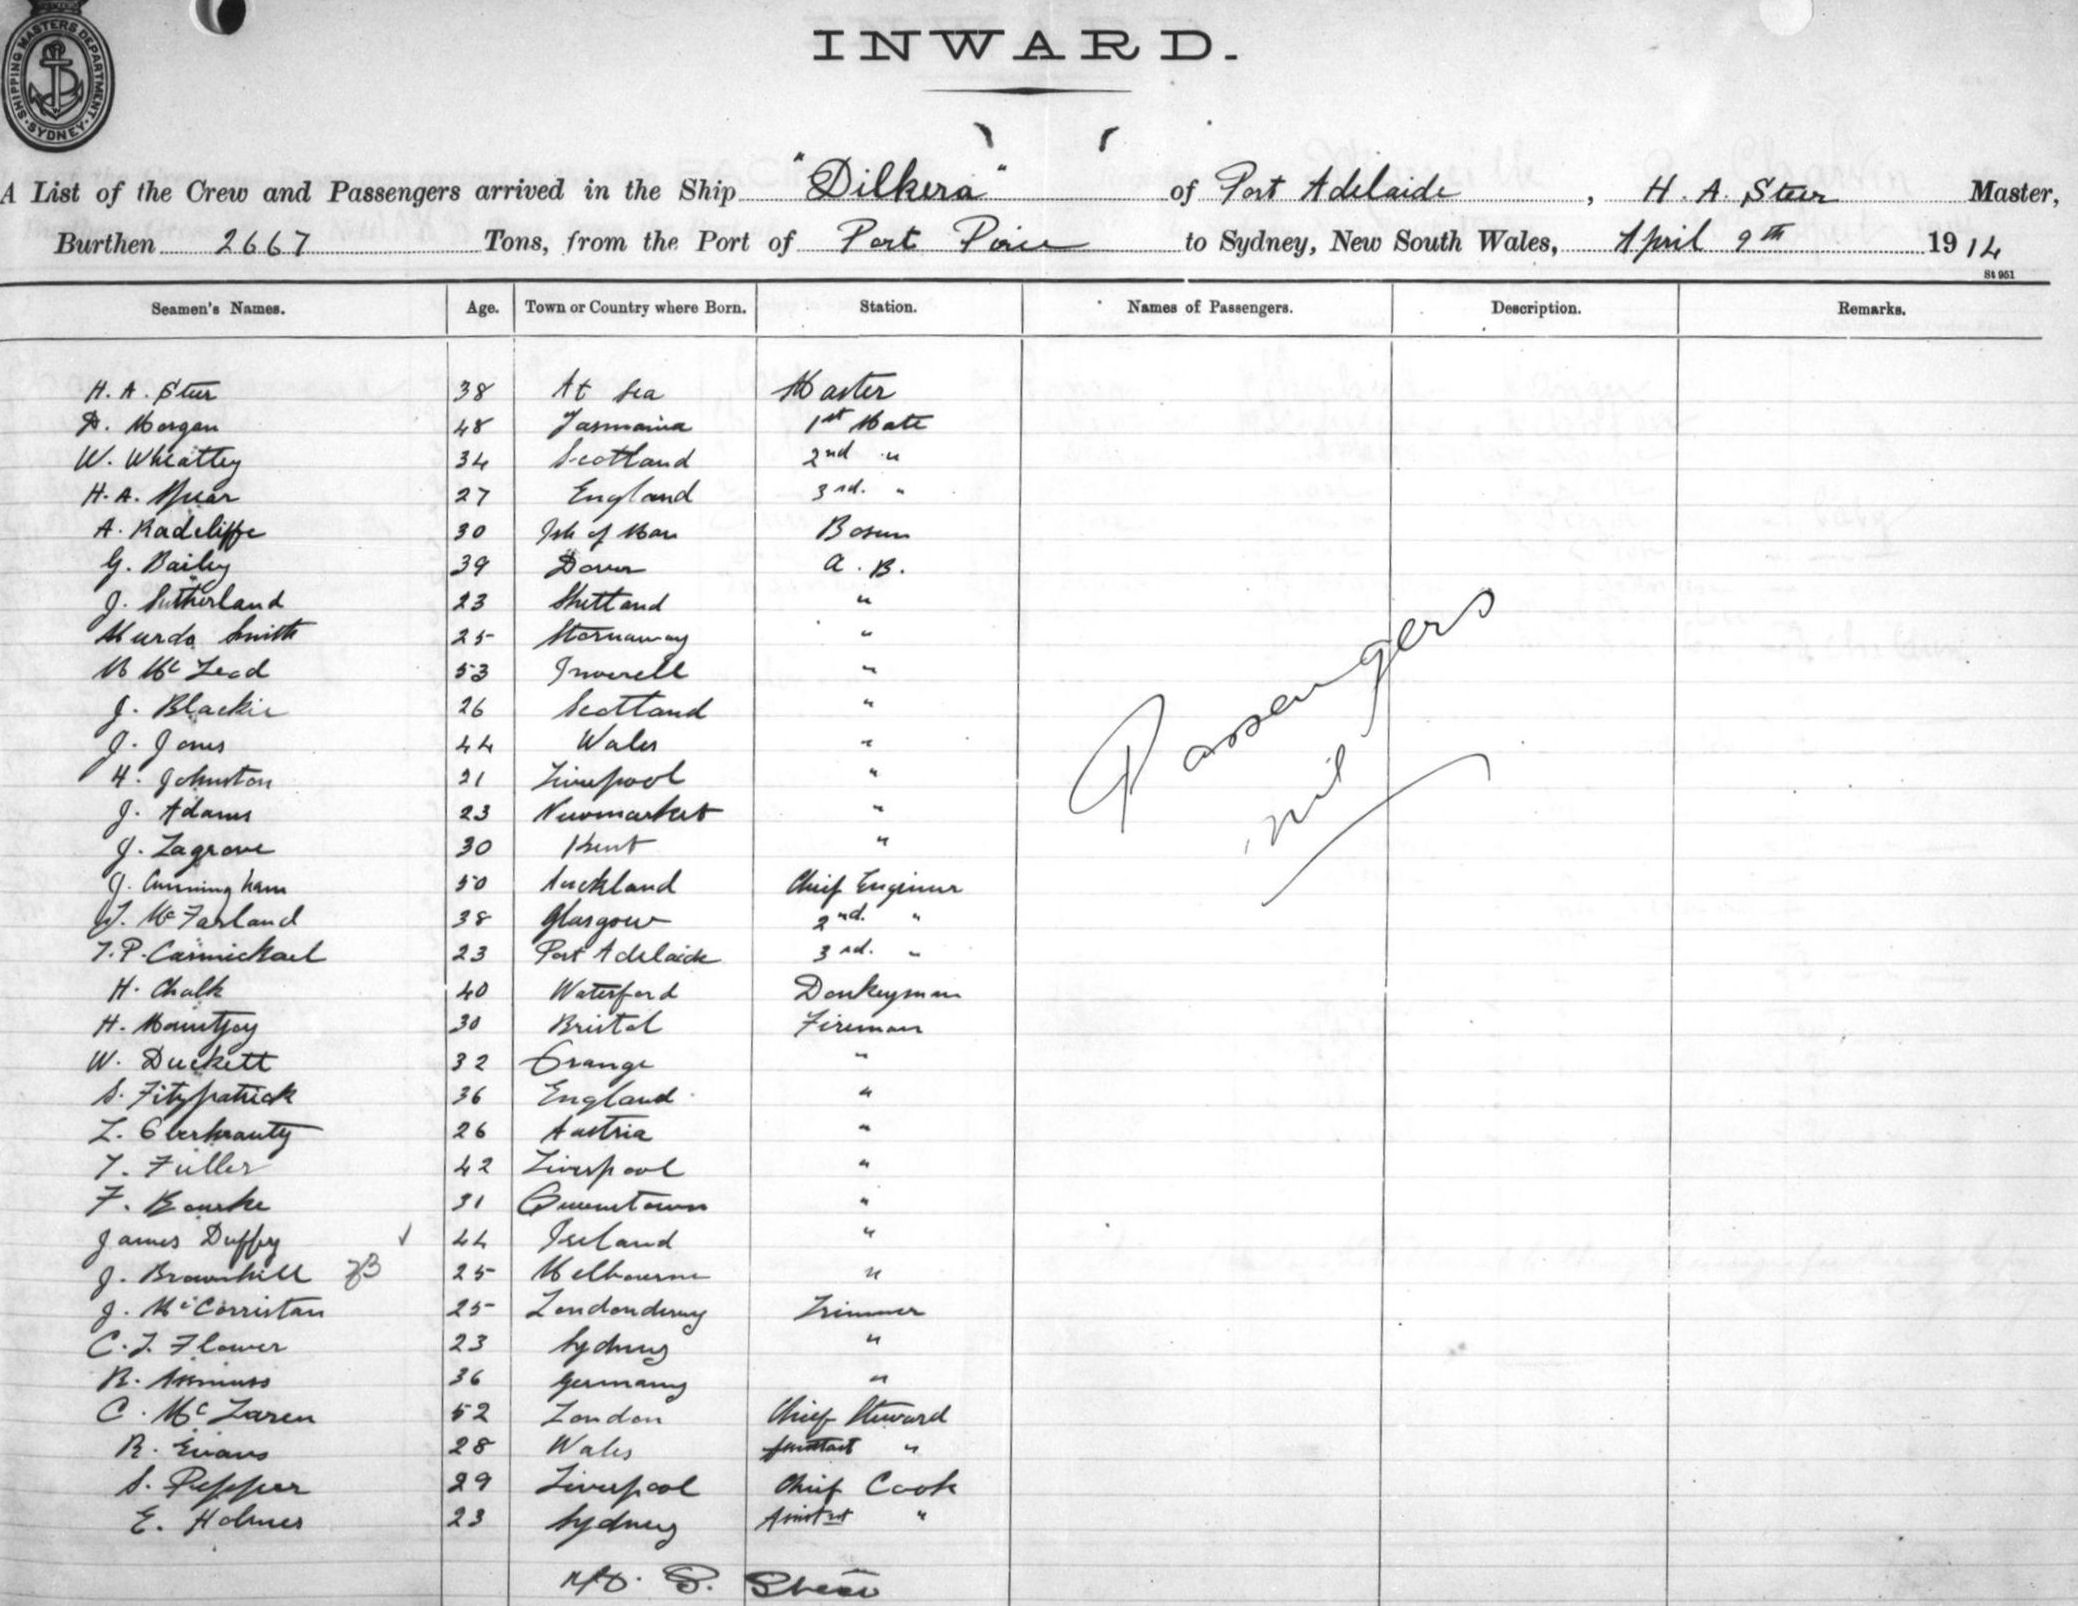 SHIPPING MASTERS DEPARTMENT. SYDNEY.
INWARD.
A List of the Crew and Passengers arrived in the Ship "Dilkera" of Port Adelaide, H. A. Steer Master,
Burthen 2667 Tons, from the Port of Port Pirie to Sydney, New South Wales, April 9th 1914
St 951
Seamen's Names. Age. Town or Country where Born. Station. Names of Passengers. Description. Remarks.
H. A. Steer 38 At Sea Master
D. Morgan 48 Tasmania 1st Mate
W. Wheatley 34 Scotland 2nd "
H. A. Spear 27 England 3rd. "
A. Radcliffe 30 Isle of Man Bosun
G. Bailey 39 Dover A. B.
J. Sutherland 23 Shetland "
Murdo Smith 25 Stornaway "
M McLeod 53 Inverell "
J. Blackie 26 Scotland "
J. Jones 44 Wales "
H. Johnston 21 Liverpool "
J. Adams 23 Newmarket "
J. Lagrove 30 Kent "
J. Cunningham 50 Auckland Chief Engineer
J. McFarland 38 Glasgow 2nd. "
T. P. Carmichael 23 Port Adelaide 3rd. "
H. Chalk 40 Waterford Donkeyman
H. Mountjoy 30 Bristol Fireman
W. Duckett 32 Orange "
S. Fitzpatrick 36 England "
L. 26 Austria "
T. Fuller 42 Liverpool "
F. Bourke 31 Queenstown "
James Duffy ✓ 44 Ireland "
J. Brownhill 25 Melbourne "
J. McCorristan 25 Londonderry Trimmer
C. J. Flower 23 Sydney "
R. Asmuss 36 Germany "
C. McLaren 52 London Chief Steward
R. Evans 28 Wales Assistant "
S. Pepper 29 Liverpool Chief Cook
E. Holmes 23 Sydney Assistant "
Passengers
nil